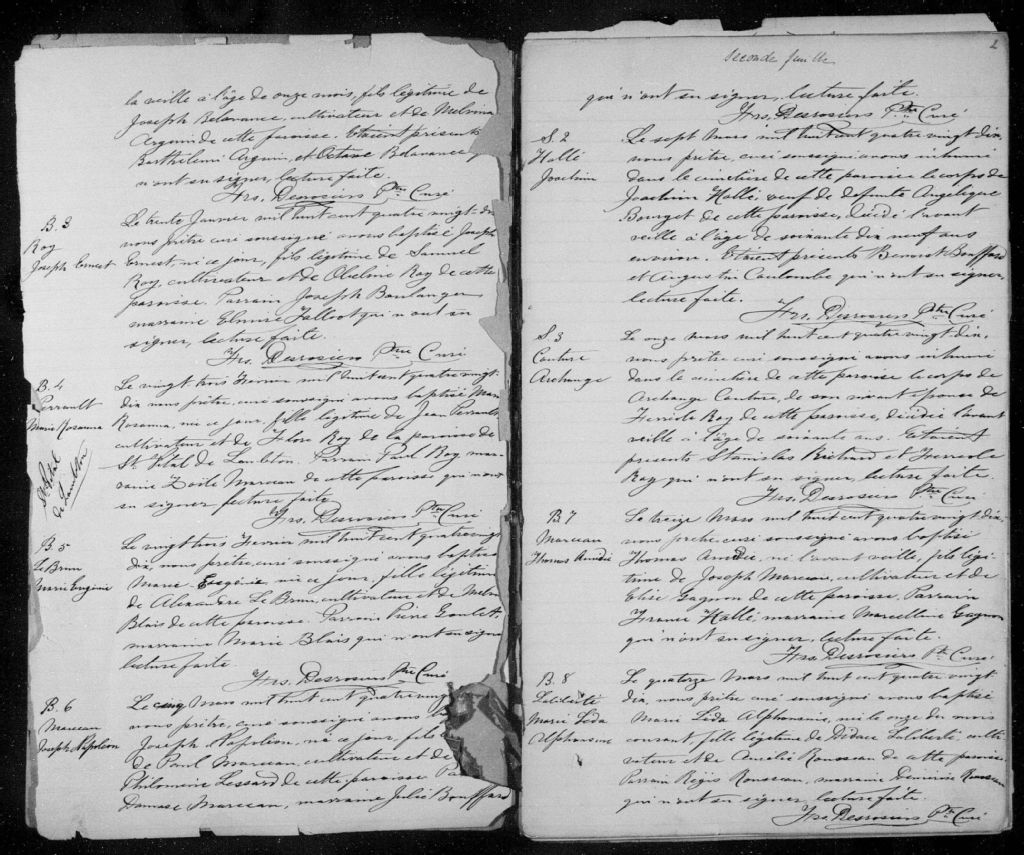 la veille à l'âge de onze mois, fils légitime de
Joseph Belavance, cultivateur et de Melvina
Arguin de cette paroisse. Etaient présents
Barthelemi Arguin, et Octave Belavance q
n'ont su signer, lecture faite.
Frs. Desrosiers Ptre Curé
B. 3
Roy
Joseph Ernest
Le trente Janvier mil huit cent quatre vingt-di
nous prêtre curé soussigné avons baptisé Joseph
Ernest, né ce jour, fils légitime de Samuel
Roy, cultivateur et de Obeline Roy de cette
paroisse. Parrain Joseph Boulanger
marraine Elmire Talbot qui n'ont su
signer, lecture faite.
Frs. Desrosiers Ptre Curé
B. 4
Perrault
Marie Rosanna
St Vital
de Lambton
Le vingt trois Fevrier mil huit cent quatre vingt
dix nous prêtre, curé soussigné avons baptisé Marie
Rosanna, née ce jour, fille légitime de Jean Perrault
cultivateur et de Flore Roy de la paroisse de
St. Vital de Lambton. Parrain Paul Roy, mar
raine Zoïle Marceau de cette paroisse qui n'ont
su signer, lecture faite
Frs. Desrosiers Ptre Curé
B. 5
Le Brun
Marie Eugénie
Le vingt trois Fevrier mil huit cent quatre vingt
dix, nous prêtre, curé soussigné avons baptisé
Marie Eugénie née ce jour, fille légitime
de Alexandre Le Brun, cultivateur et de Melvi
Blais de cette paroisse. Parrain Pierre Goulet,
marraine Marie Blais qui n'ont su signer
lecture faite.
Frs. Desrosiers Ptre Curé
B. 6
Marceau
Joseph Napoléon
Le cinq Mars mil huit cent quatre ving
nous prêtre, curé soussigné avons b
Joseph Napoléon, né ce jour, fils
de Paul Marceau, cultivateur et de
Philomène Lessard de cette paroisse Pa
Damase Marceau, marraine Julie Bouffard
2
Seconde feuille
qui n'ont su signer, lecture faite.
Frs. Desrosiers Ptre Curé
S. 2
Hallé
Joachim
Le sept Mars mil huit cent quatre vingt dix
nous prêtre, curé soussigné avons inhumé
dans le cimetière de cette paroisse le corps de
Joachim Hallé, veuf de defunte Angelique
Bourget de cette paroisse, décédé l'avant
veille à l'âge de soixante dix neuf ans
environ. Etaient présents Benoist Bouffard
et Augustin Coulombe qui n'ont su signer,
lecture faite.
Frs. Desrosiers Ptre Curé
S. 3
Couture
Archange
Le onze Mars mil huit cent quatre vingt dix,
nous prêtre, curé soussigné avons inhumé
dans le cimetière de cette paroisse le corps de
Archange Couture, de son vivant épouse de
Hercule Roy de cette paroisse, décédée l'avant
veille à l'âge de soixante ans. Etaient
présents Stanislas Richard et Hercule
Roy qui n'ont su signer, lecture faite.
Frs. Desrosiers Ptre Curé
B. 7
Marceau
Thomas Amédé
Le treize Mars mil huit cent quatre vingt-dix
nous prêtre, curé soussigné avons baptisé
Thomas Amédé né l'avant veille, fils légi
time de Joseph Marceau, cultivateur et de
Elise Gagnon de cette paroisse, Parrain
France Hallé, marraine Marcelline Gagnon
qui n'ont su signer, lecture faite.
Frs. Desrosiers Pt. Curé
B. 8
Laliberté
Marie Lida
Alphonsine
Le quatorze Mars mil huit cent quatre vingt
dix, nous prêtre curé soussigné avons baptisé
Marie Lida Alphonsine, née le onze du mois
courant, fille légitime de Didace Laliberté, culti
vateur et de Amélie Rousseau de cette paroisse.
Parrain Régis Rousseau, marraine Rousseau
qui n'ont su signer, lecture faite.
Frs. Desrosiers Ptre Curé